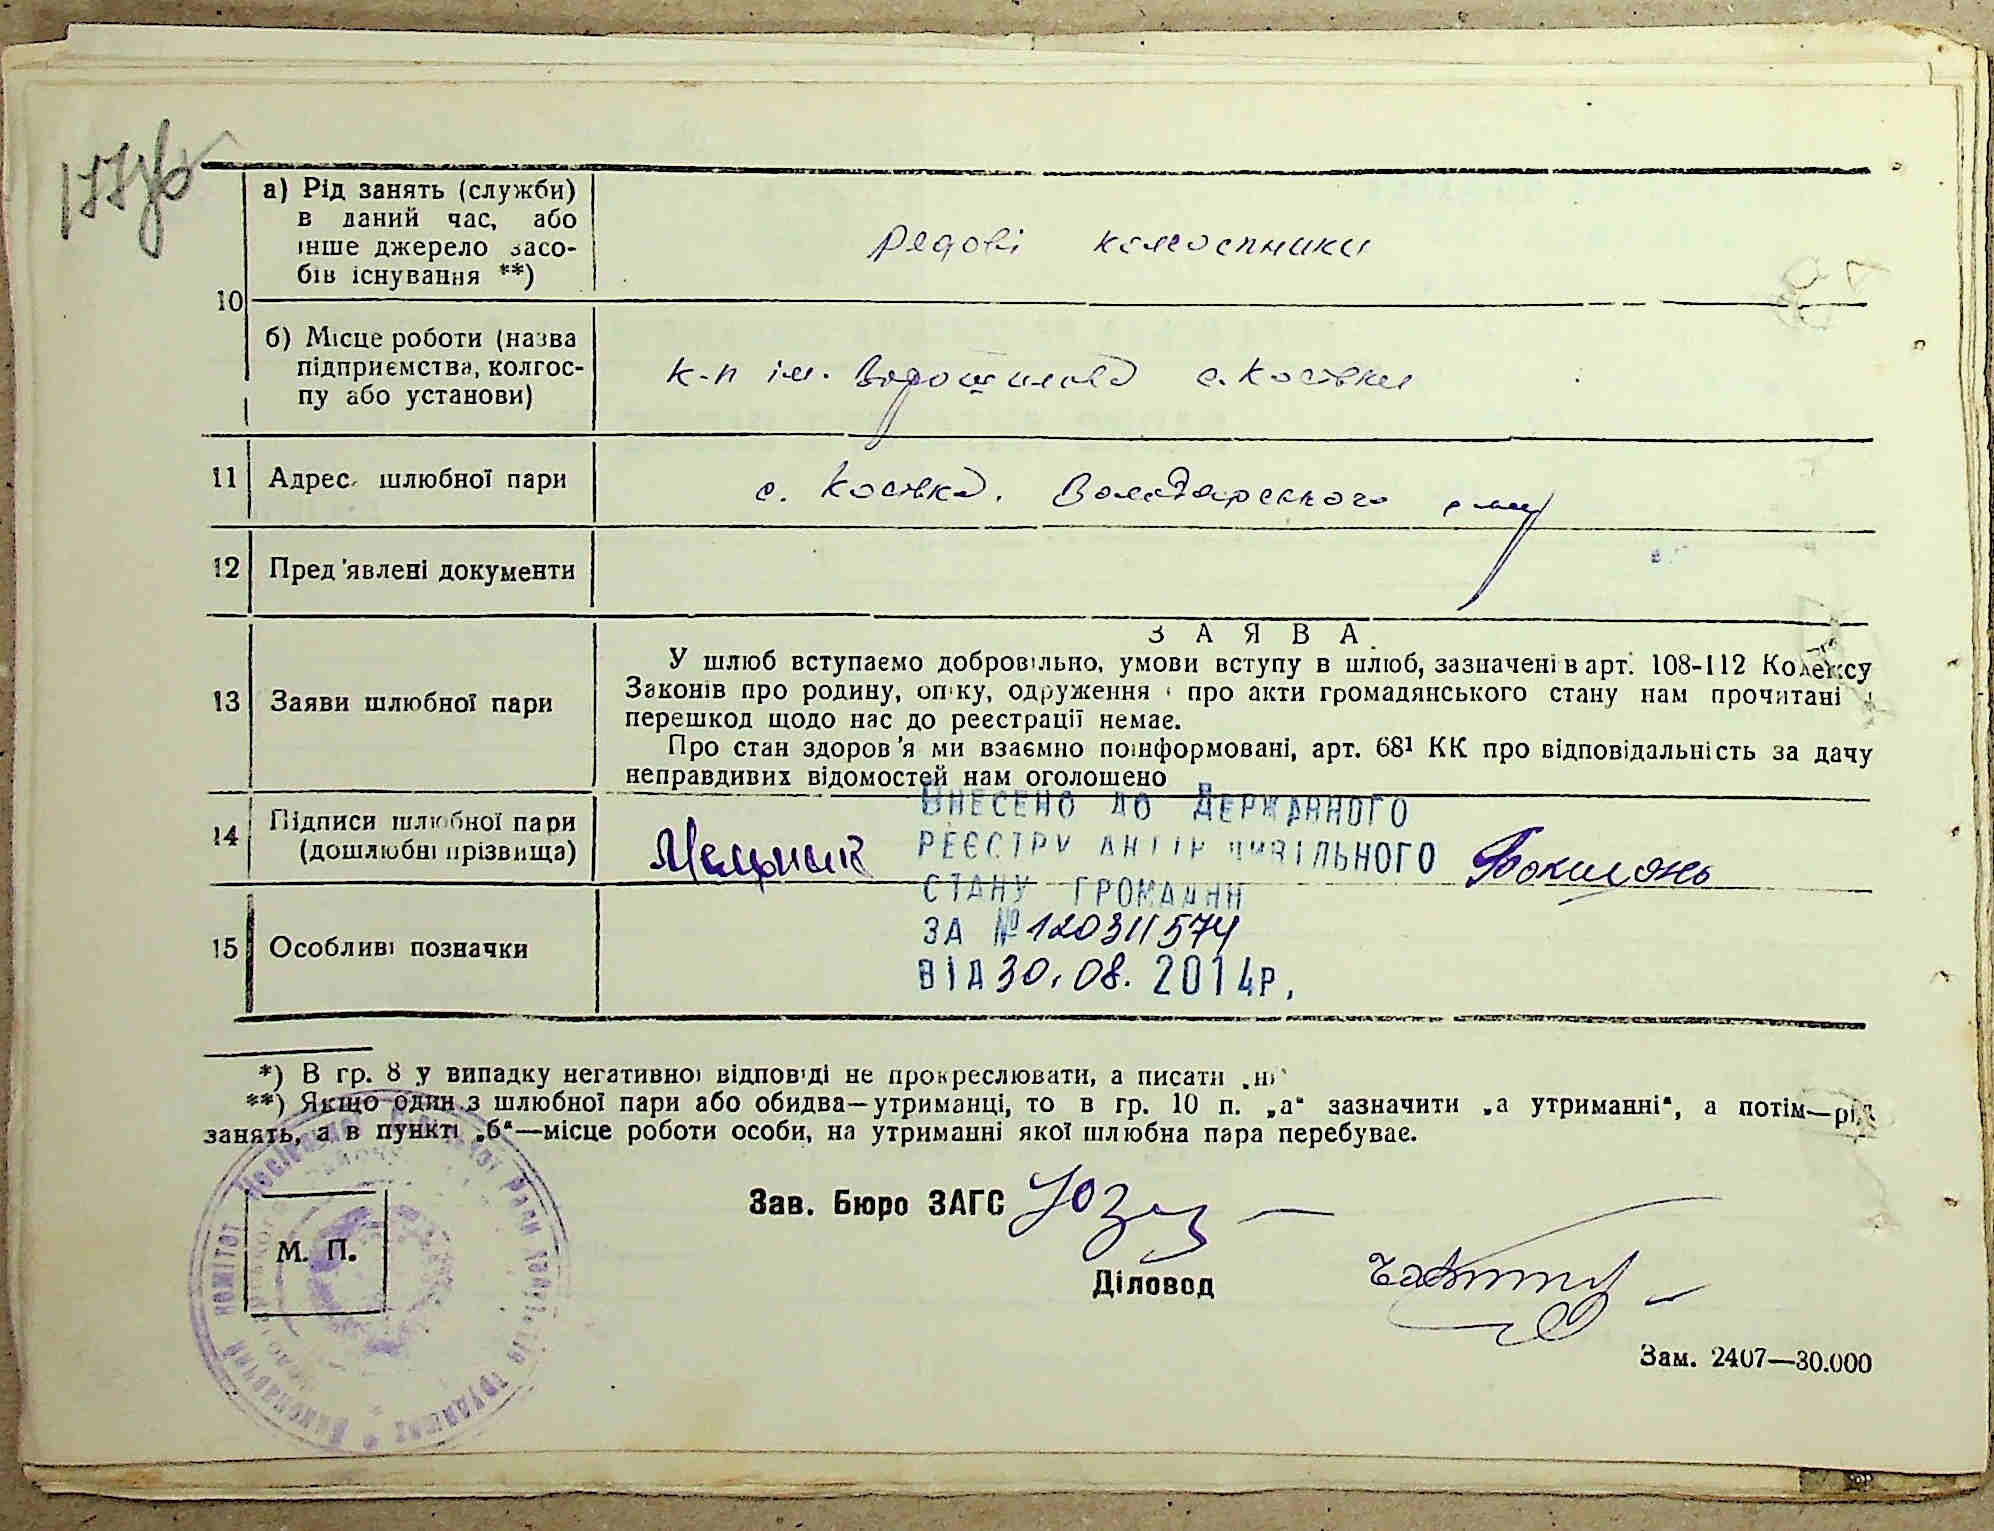 177зв
а) Рід занять (служби)
в даний час, або
інше джерело засо-
бів існування **)
рядові колгоспники
10
б) Місце роботи (назва
підприємства, колгос-
пу або установи)
к-п ім. Ворошилова с. Косівки
11 Адрес шлюбної пари
с. Косівка. Володарського р-ну
12 Пред'явлені документи
ЗАЯВА
13 Заяви шлюбної пари
У шлюб вступаємо добровільно, умови вступу в шлюб, зазначені в арт. 108-112 Кодексу
Законів про родину, опіку, одруження і про акти громадянського стану нам прочитані і
перешкод щодо нас до реєстрації немає.
Про стан здоров'я ми взаємно поінформовані, арт. 68¹ КК про відповідальність за дачу
неправдивих відомостей нам оголошено
14 Підписи шлюбної пари
(дошлюбні прізвища)
Мельник
ВНЕСЕНО ДО ДЕРЖАВНОГО
РЕЄСТРУ АКТІВ ЦИВІЛЬНОГО
СТАНУ ГРОМАДЯН
ЗА № 120311574
ВІД 30.08.2014р.
15 Особливі позначки
*) В гр. 8 у випадку негативної відповіді не прокреслювати, а писати „ні“
**) Якщо один з шлюбної пари або обидва—утриманці, то в гр. 10 п. „а“ зазначити „а утриманні“, а потім—рід
занять, а в пункті „б“—місце роботи особи, на утриманні якої шлюбна пара перебуває.
М. П.
Виконавчий комітет Ради депутатів трудящих
Зав. Бюро ЗАГС
Діловод
Зам. 2407—30.000